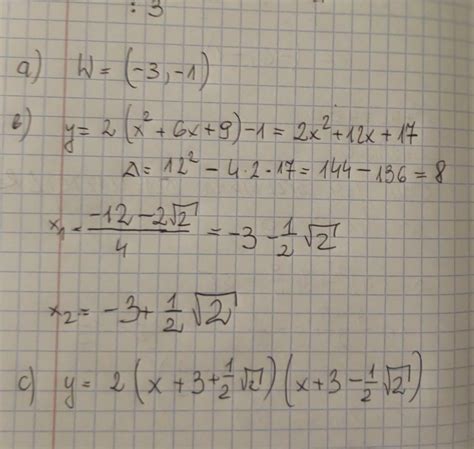 : 3
a) W = (-3, -1)
b) y = 2(x² + 6x + 9) - 1 = 2x² + 12x + 17
Δ = 12² - 4·2·17 = 144 - 136 = 8
x₁ = \frac{-12-2√2}{4} = -3 - \frac{1}{2}√2
x₂ = -3 + \frac{1}{2}√2
c) y = 2(x + 3 + \frac{1}{2}√2)(x + 3 - \frac{1}{2}√2)